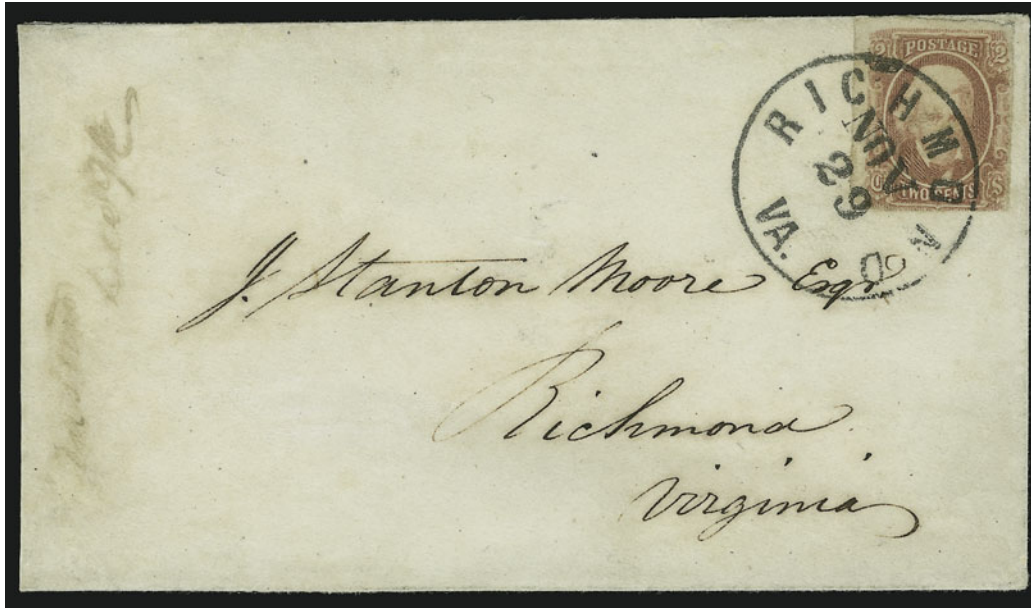 2 POSTAGE 2
TWO CENTS
RICHMOND
NOV
29
VA.
J. Stanton Moore Esqr
Richmond
Virginia